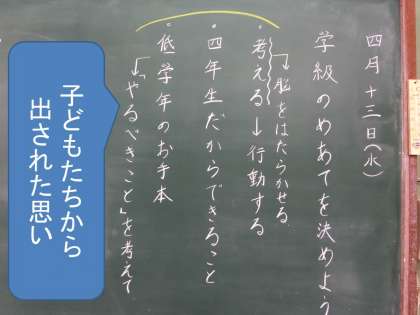 四月十三日(水)
学級のめあてを決めよう
→脳をはたらかせる
・考える→行動する
・四年生だからできること
・低学年のお手本
→「やるべきこと」を考えて
子どもたちから
出された思い